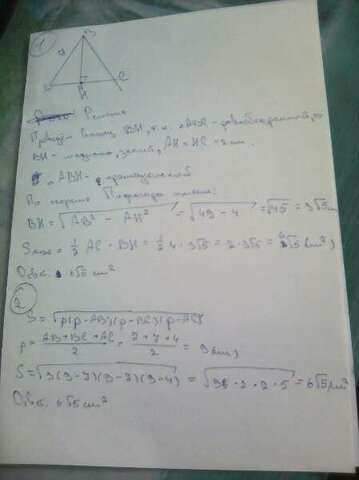 1
B
7
A
H
C
Решение
Провед. высоту BH, т.к. △ABC - равнобедренный, то
BH - медиана, значит, AH = HC = 2 см.
△ABH - прямоугольный
По теореме Пифагора имеем:
BH = √(AB² - AH²) = √(49 - 4) = √45 = 3√5 см
S = 1/2 AC · BH = 1/2 · 4 · 3√5 = 2 · 3√5 = 6√5 (см²)
Ответ: 6√5 см²
2
S = √(p(p-AB)(p-BC)(p-AC))
p = (AB+BC+AC)/2 = (7+7+4)/2 = 9 (см)
S = √(9(9-7)(9-7)(9-4)) = √(9 · 2 · 2 · 5) = 6√5 см²
Ответ: 6√5 см²